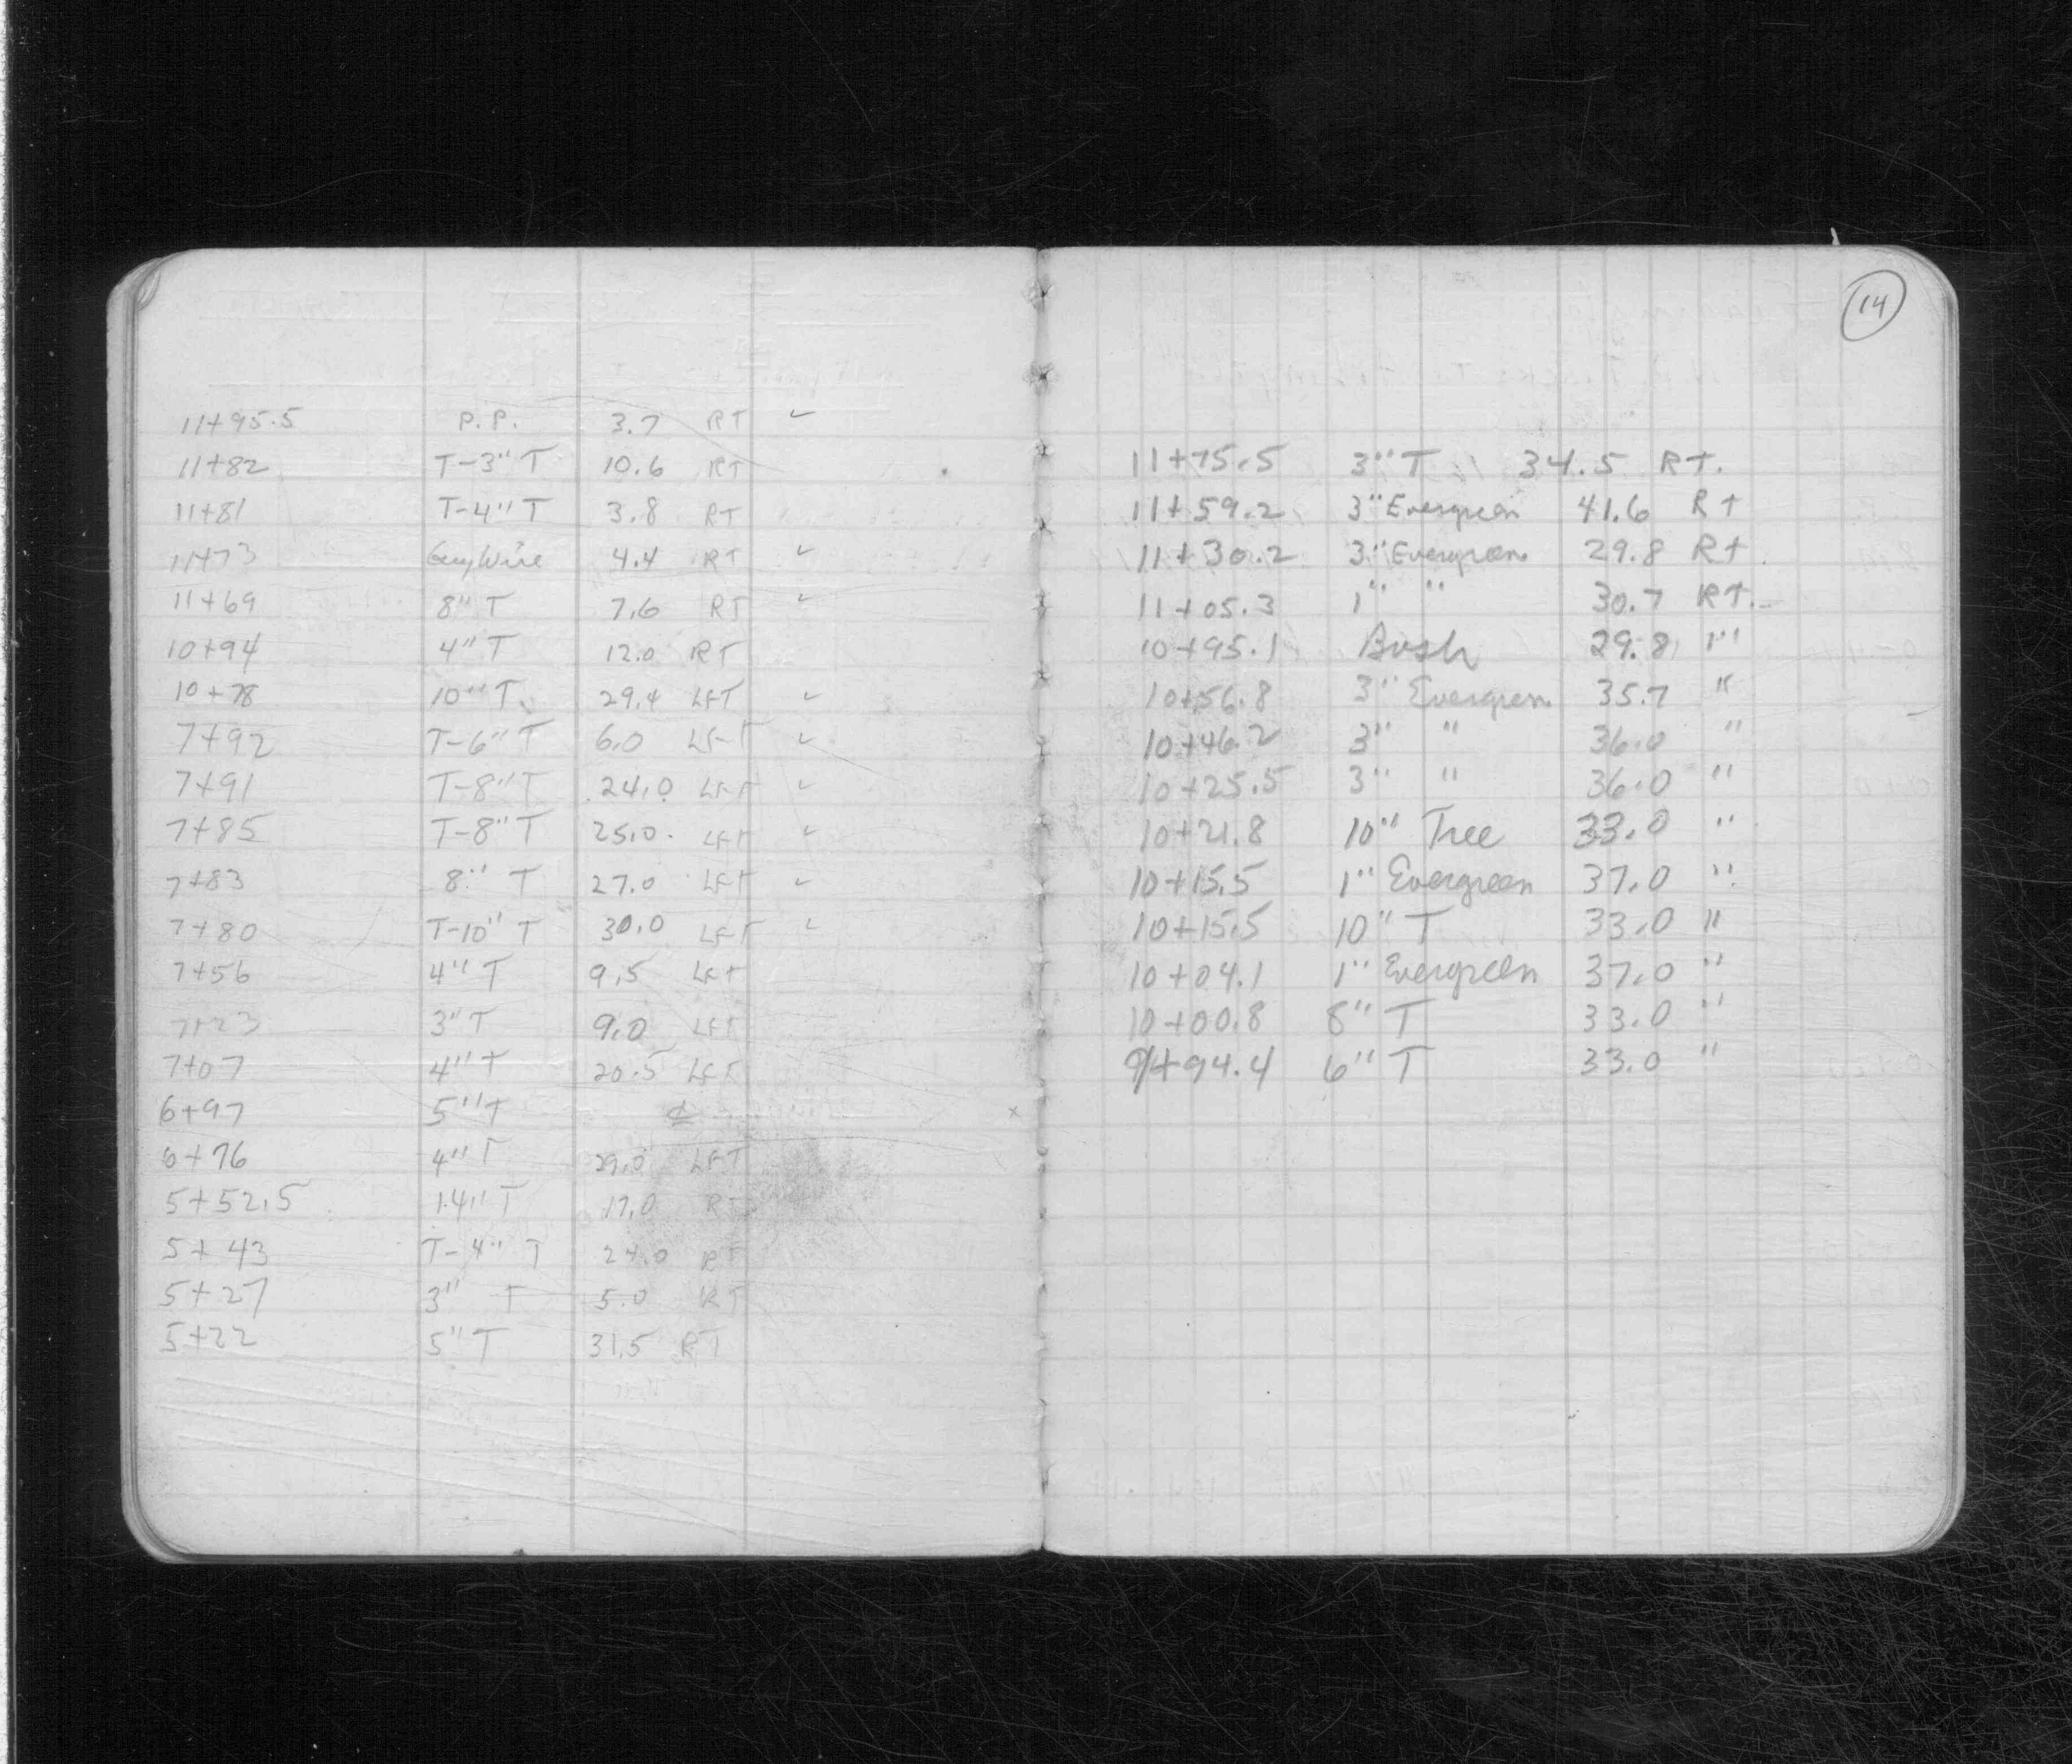 11+95.5 P.P. 3.7 RT ✓
11+82 T-3" T 10.6 RT
11+81 T-4" T 3.8 RT
11+73 Guy Wire 4.4 RT ✓
11+69 8" T 7.6 RT ✓
10+94 4" T 12.0 RT
10+78 10" T 29.4 LFT ✓
7+92 T-6" T 6.0 LFT ✓
7+91 T-8" T 24.0 LFT ✓
7+85 T-8" T 25.0 LFT ✓
7+83 8" T 27.0 LFT ✓
7+80 T-10" T 30.0 LFT ✓
7+56 4" T 9.5 LFT
7+23 3" T 9.0 LFT
7+07 4" T 20.5 LFT
6+97 5" T ℄
6+76 4" T 29.0 LFT
5+52.5 T 17.0 RT
5+43 T-4" T 24.0 RT
5+27 3" T 5.0 RT
5+22 5" T 31.5 RT
14
11+75.5 3" T 34.5 Rt.
11+59.2 3" Evergreen 41.6 Rt
11+30.2 3" Evergreen 29.8 Rt.
11+05.3 1" " 30.7 Rt.
10+95.1 Bush 29.8 "
10+56.8 3" Evergreen 35.7 "
10+46.2 3" " 36.0 "
10+25.5 3" " 36.0 "
10+21.8 10" Tree 33.0 "
10+15.5 1" Evergreen 37.0 "
10+15.5 10" T 33.0 "
10+04.1 1" Evergreen 37.0 "
10+00.8 8" T 33.0 "
9+94.4 6" T 33.0 "